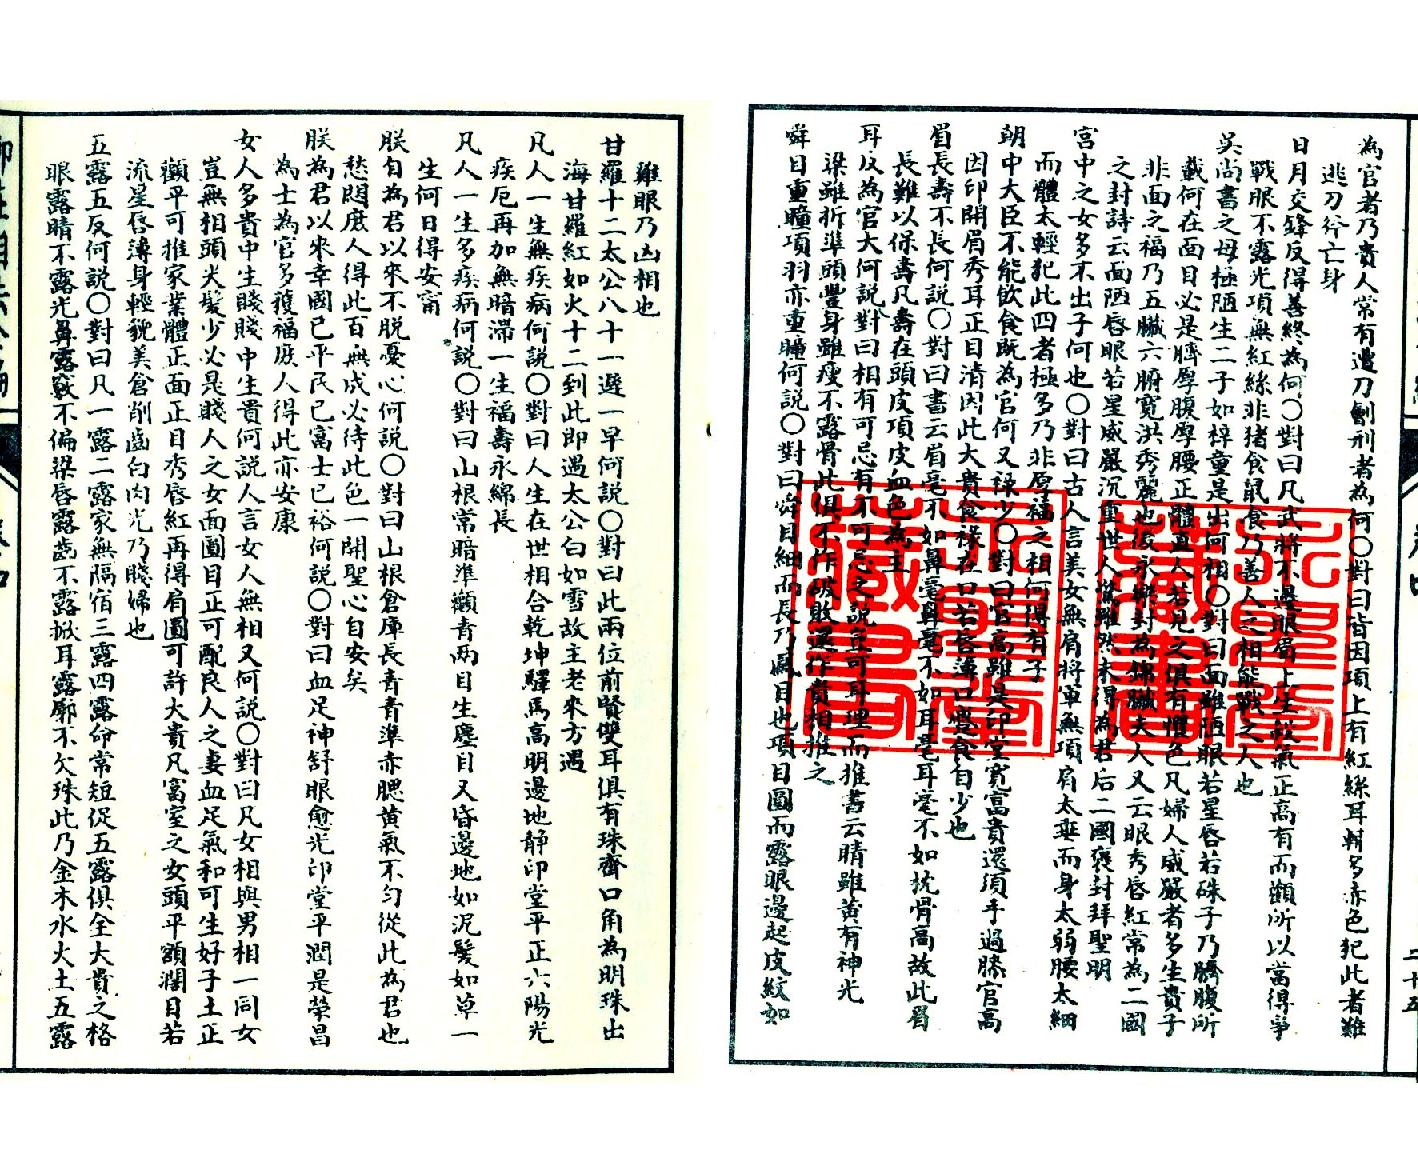 為官者乃貴人常有遭刀劊刑者為何〇對曰皆因項上有紅絲耳輔多赤色犯此者難
逃刀斧亡身
日月交鋒反得善終為何〇對曰凡武將不邊眼眉上生殺氣正高有而顴所以當得爭
戰眼不露光項無紅絲非猪食鼠食乃善人之相能戰之人也
吳尚書之母極陋生二子如梓童是出何相〇對曰面雖陋眼若星唇若硃子乃臍腹所
載何在面目必是臍厚腹厚腰正體直人若見之俱有懼色凡婦人威嚴者多生貴子
非面之福乃五臟六腑寬洪秀麗也後永樂封為錦臟夫人又云眼秀唇紅常為二國
之封詩云面陋唇眼若星威嚴沉重世人驚雖然未得為君后二國褒封拜聖明
宮中之女多不出子何也〇對曰古人言美女無肩將軍無項肩太垂而身太弱腰太細
而體太輕犯此四者極多乃非厚福之相何得有子
朝中大臣不能飲食既為官何又祿少〇對曰官高雖是印堂寬富貴還須手過膝官高
因印開眉秀耳正目清因此大貴食祿在口若唇薄口𡮢食自少也
眉長壽不長何說〇對曰書云眉毫不如鼻毫鼻毫不如耳毫耳毫不如枕骨高故此眉
長難以保壽凡壽在頭皮項皮血色為主
耳反為官大何說對曰相有可忌有不可忌之說豈可耳理而推書云睛雖黃有神光
梁雖折準頭豐身雖瘦不露骨此俱不作破敗還作貴相推之
舜目重瞳項羽亦重瞳何說〇對曰舜目細而長乃鳳目也項目圓而露眼邊起皮紋如
雞眼乃凶相也
甘羅十二太公八十一遲一早何說〇對曰此兩位前賢雙耳俱有珠齊口角為明珠出
海甘羅紅如火十二到此即遇太公白如雪故主老來方遇
凡人一生無疾病何說〇對曰人生在世相合乾坤驛馬高明邊地静印堂平正六陽光
疾厄再加無暗滯一生福壽永綿長
凡人一生多疾病何說〇對曰山根常暗準顴青兩目生塵目又昏邊地如泥髪如草一
生何日得安甯
朕自為君以來不脱憂心何說〇對曰山根倉庫長青青準赤腮黄氣不匀從此為君也
愁悶庶人得此百無成必待此色一開聖心自安矣
朕為君以來幸國已平民已富士已裕何說〇對曰血足神舒眼愈光印堂平潤是榮昌
為士為官多獲福庶人得此亦安康
女人多貴中生賤賤中生貴何說人言女人無相又何說〇對曰凡女相與男相一同女
豈無相頭尖髮少必是賤人之女面圓目正可配良人之妻血足氣和可生好子土正
顴平可推家業體正面正目秀唇紅再得肩圓可許大貴凡富室之女頭平額濶目若
流星唇薄身輕貌美倉削齒白肉光乃賤婦也
五露五反何說〇對曰凡一露二露家無隔宿三露四露命常短促五露俱全大貴之格
眼露睛不露光鼻露竅不偏梁唇露齒不露掀耳露廓不欠珠此乃金木水火土五露